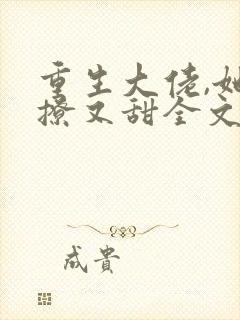 重生大佬,她
撩又甜全文
成貴